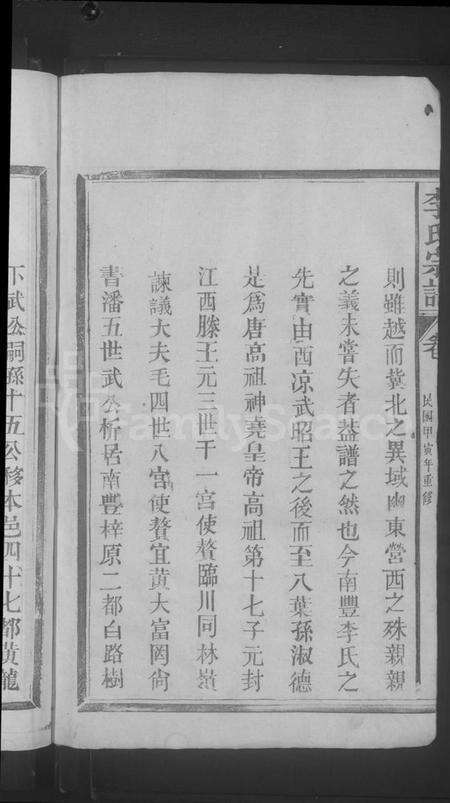 李氏宗譜
卷
民國甲寅年重修
則雖越而冀北之異域幽東營西之殊親親
之義未嘗失者益譜之然也今南豐李氏之
先實由西凉武昭王之後而至八葉孫淑德
是爲唐高祖神堯皇帝高祖第十七子元封
江西滕王元三世干一宮使贅臨川同林嶺
諫議大夫毛四世八宮使贅宜黃大富岡尙
書潘五世武公析居南豐梓原二都白路樹
下武公嗣孫十五公移本邑四十七都黃龍
FamilySearch